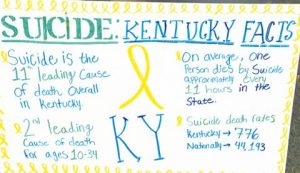 SUICIDE: KENTUCKY FACTS
Suicide is the
11th leading Cause
of death Overall
in Kentucky.
2nd leading
Cause of death
for ages 10-34
KY
On average, one
Person dies by Suicide
approximately every
11 hours in the
State.
Suicide death rates
Kentucky → 776
Nationally → 44,193